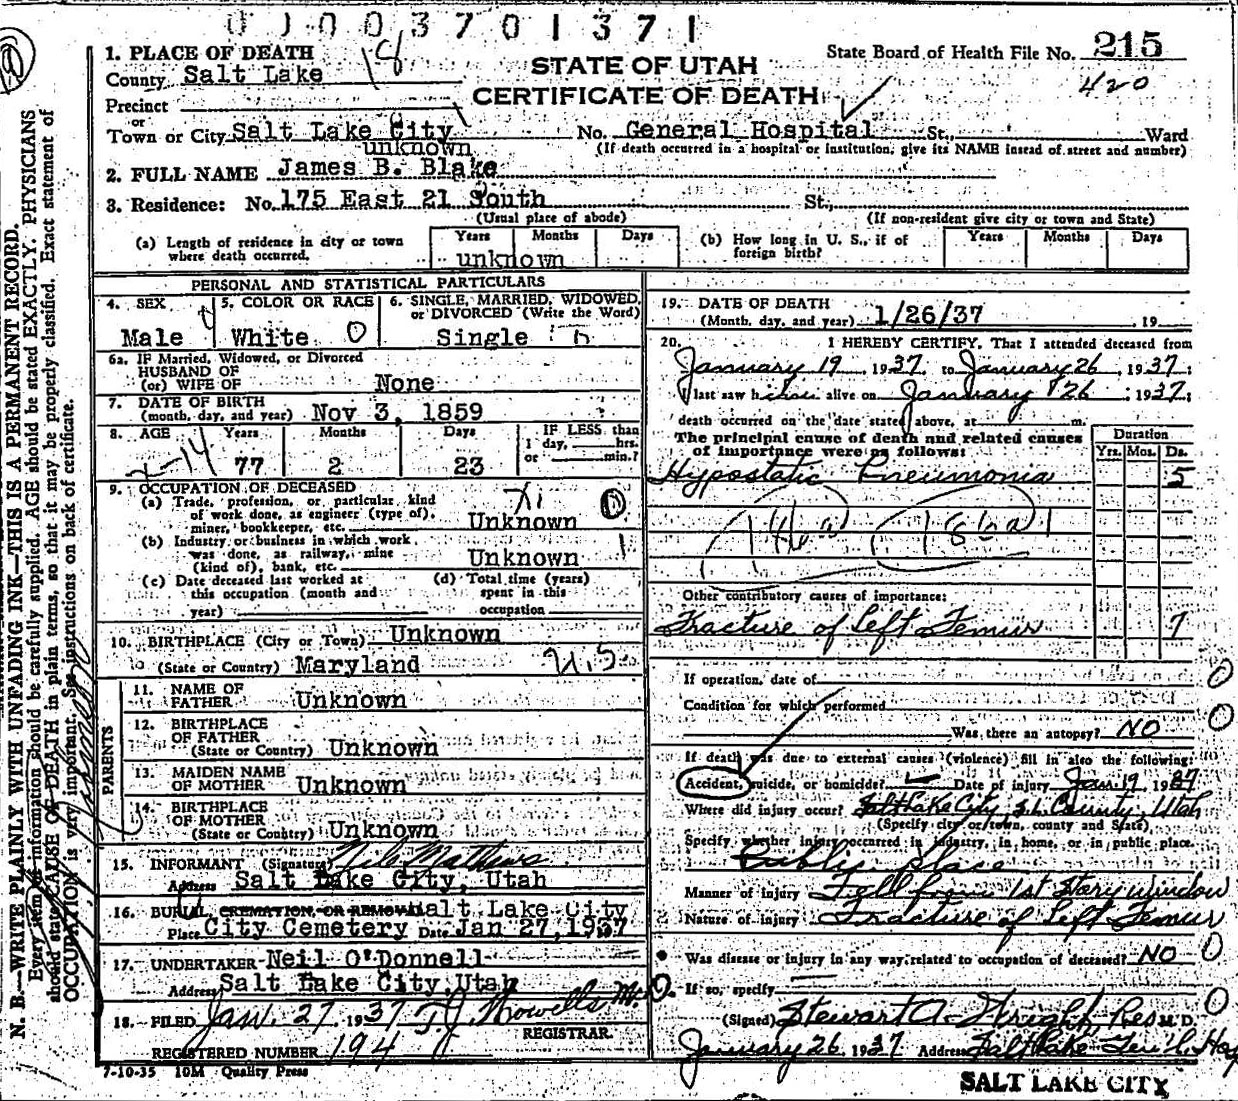 01003701371
1. PLACE OF DEATH
County Salt Lake 18
STATE OF UTAH
CERTIFICATE OF DEATH
State Board of Health File No. 215
420
Precinct
or
Town or City Salt Lake City No. General Hospital St., Ward
unknown (If death occurred in a hospital or institution, give its NAME instead of street and number)
2. FULL NAME James B. Blake
3. Residence: No. 175 East 21 South St.,
(Usual place of abode) (If non-resident give city or town and State)
(a) Length of residence in city or town where death occurred. Years Months Days
unknown
(b) How long in U. S., if of foreign birth? Years Months Days
PERSONAL AND STATISTICAL PARTICULARS
4. SEX 5. COLOR OR RACE 6. SINGLE, MARRIED, WIDOWED, or DIVORCED (Write the Word)
Male White Single
6a. IF Married, Widowed, or Divorced
HUSBAND OF
(or) WIFE OF None
7. DATE OF BIRTH
(month, day, and year) Nov 3, 1859
8. AGE Years Months Days IF LESS than
1 day, hrs.
or min.?
77 2 23
9. OCCUPATION OF DECEASED
(a) Trade, profession, or particular kind
of work done, as engineer (type of),
miner, bookkeeper, etc. Unknown
(b) Industry or business in which work
was done, as railway, mine
(kind of), bank, etc. Unknown
(c) Date deceased last worked at
this occupation (month and
year)
(d) Total time (years)
spent in this
occupation
10. BIRTHPLACE (City or Town) Unknown
(State or Country) Maryland U.S
PARENTS
11. NAME OF
FATHER Unknown
12. BIRTHPLACE
OF FATHER
(State or Country) Unknown
13. MAIDEN NAME
OF MOTHER Unknown
14. BIRTHPLACE
OF MOTHER
(State or Country) Unknown
15. INFORMANT (Signature) Mathews
Address Salt Lake City, Utah
16. BURIAL, CREMATION, OR REMOVAL Salt Lake City
Place City Cemetery Date Jan 27, 1937
17. UNDERTAKER Neil O'Donnell
Address Salt Lake City, Utah
18. FILED Jan. 27 1937 T.J. Howells M.D.
REGISTRAR
REGISTERED NUMBER 194
7-10-35 10M Quality Press
19. DATE OF DEATH
(Month, day, and year) 1/26/37, 19
20. I HEREBY CERTIFY, That I attended deceased from
January 19 1937 to January 26, 1937;
I last saw him alive on January 26 : 1937;
death occurred on the date stated above, at m.
The principal cause of death and related causes
of importance were as follows: Duration
Yrs. Mos. Ds.
Hypostatic Pneumonia 5
Other contributory causes of importance:
Fracture of left Femur 7
If operation, date of
Condition for which performed
Was there an autopsy? NO
If death was due to external causes (violence) fill in also the following:
Accident, suicide, or homicide? Date of injury Jan. 19 1937
Where did injury occur? Salt Lake City, S.L. County, Utah
(Specify city or town, county and State)
Specify whether injury occurred in industry, in home, or in public place.
Public place
Manner of injury Fell from 1st story window
Nature of injury Fracture of left Femur
Was disease or injury in any way related to occupation of deceased? NO
If so, specify
(Signed) Stewart A. Wright, Res M. D.
January 26, 1937 Address Salt Lake Gen'l. Hos
SALT LAKE CITY
N. B.—WRITE PLAINLY WITH UNFADING INK—THIS IS A PERMANENT RECORD.
Every item of information should be carefully supplied. AGE should be stated EXACTLY. PHYSICIANS
should state CAUSE OF DEATH in plain terms, so that it may be properly classified. Exact statement of
OCCUPATION is very important. See instructions on back of certificate.